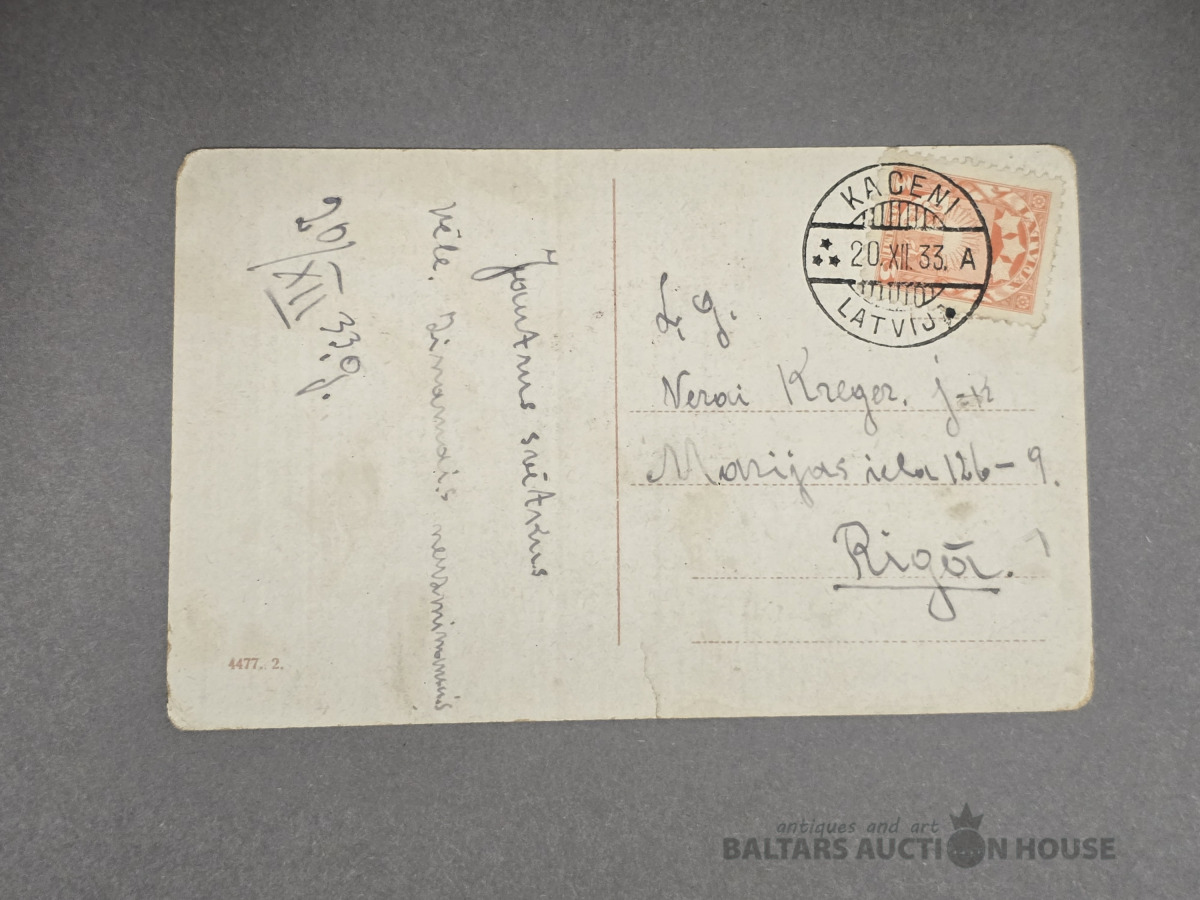 Jautrus svētkus
vēle. Zināmais nezināmais
20/XII 33.g.
4477. 2.
KACENI
20.XII.33. A
LATVIJA
LATVIJA
Z. Dj.
Verai Kreger. j-k
Marijas iela 126-9.
Rīgā.
antiques and art
BALTARS AUCTION HOUSE